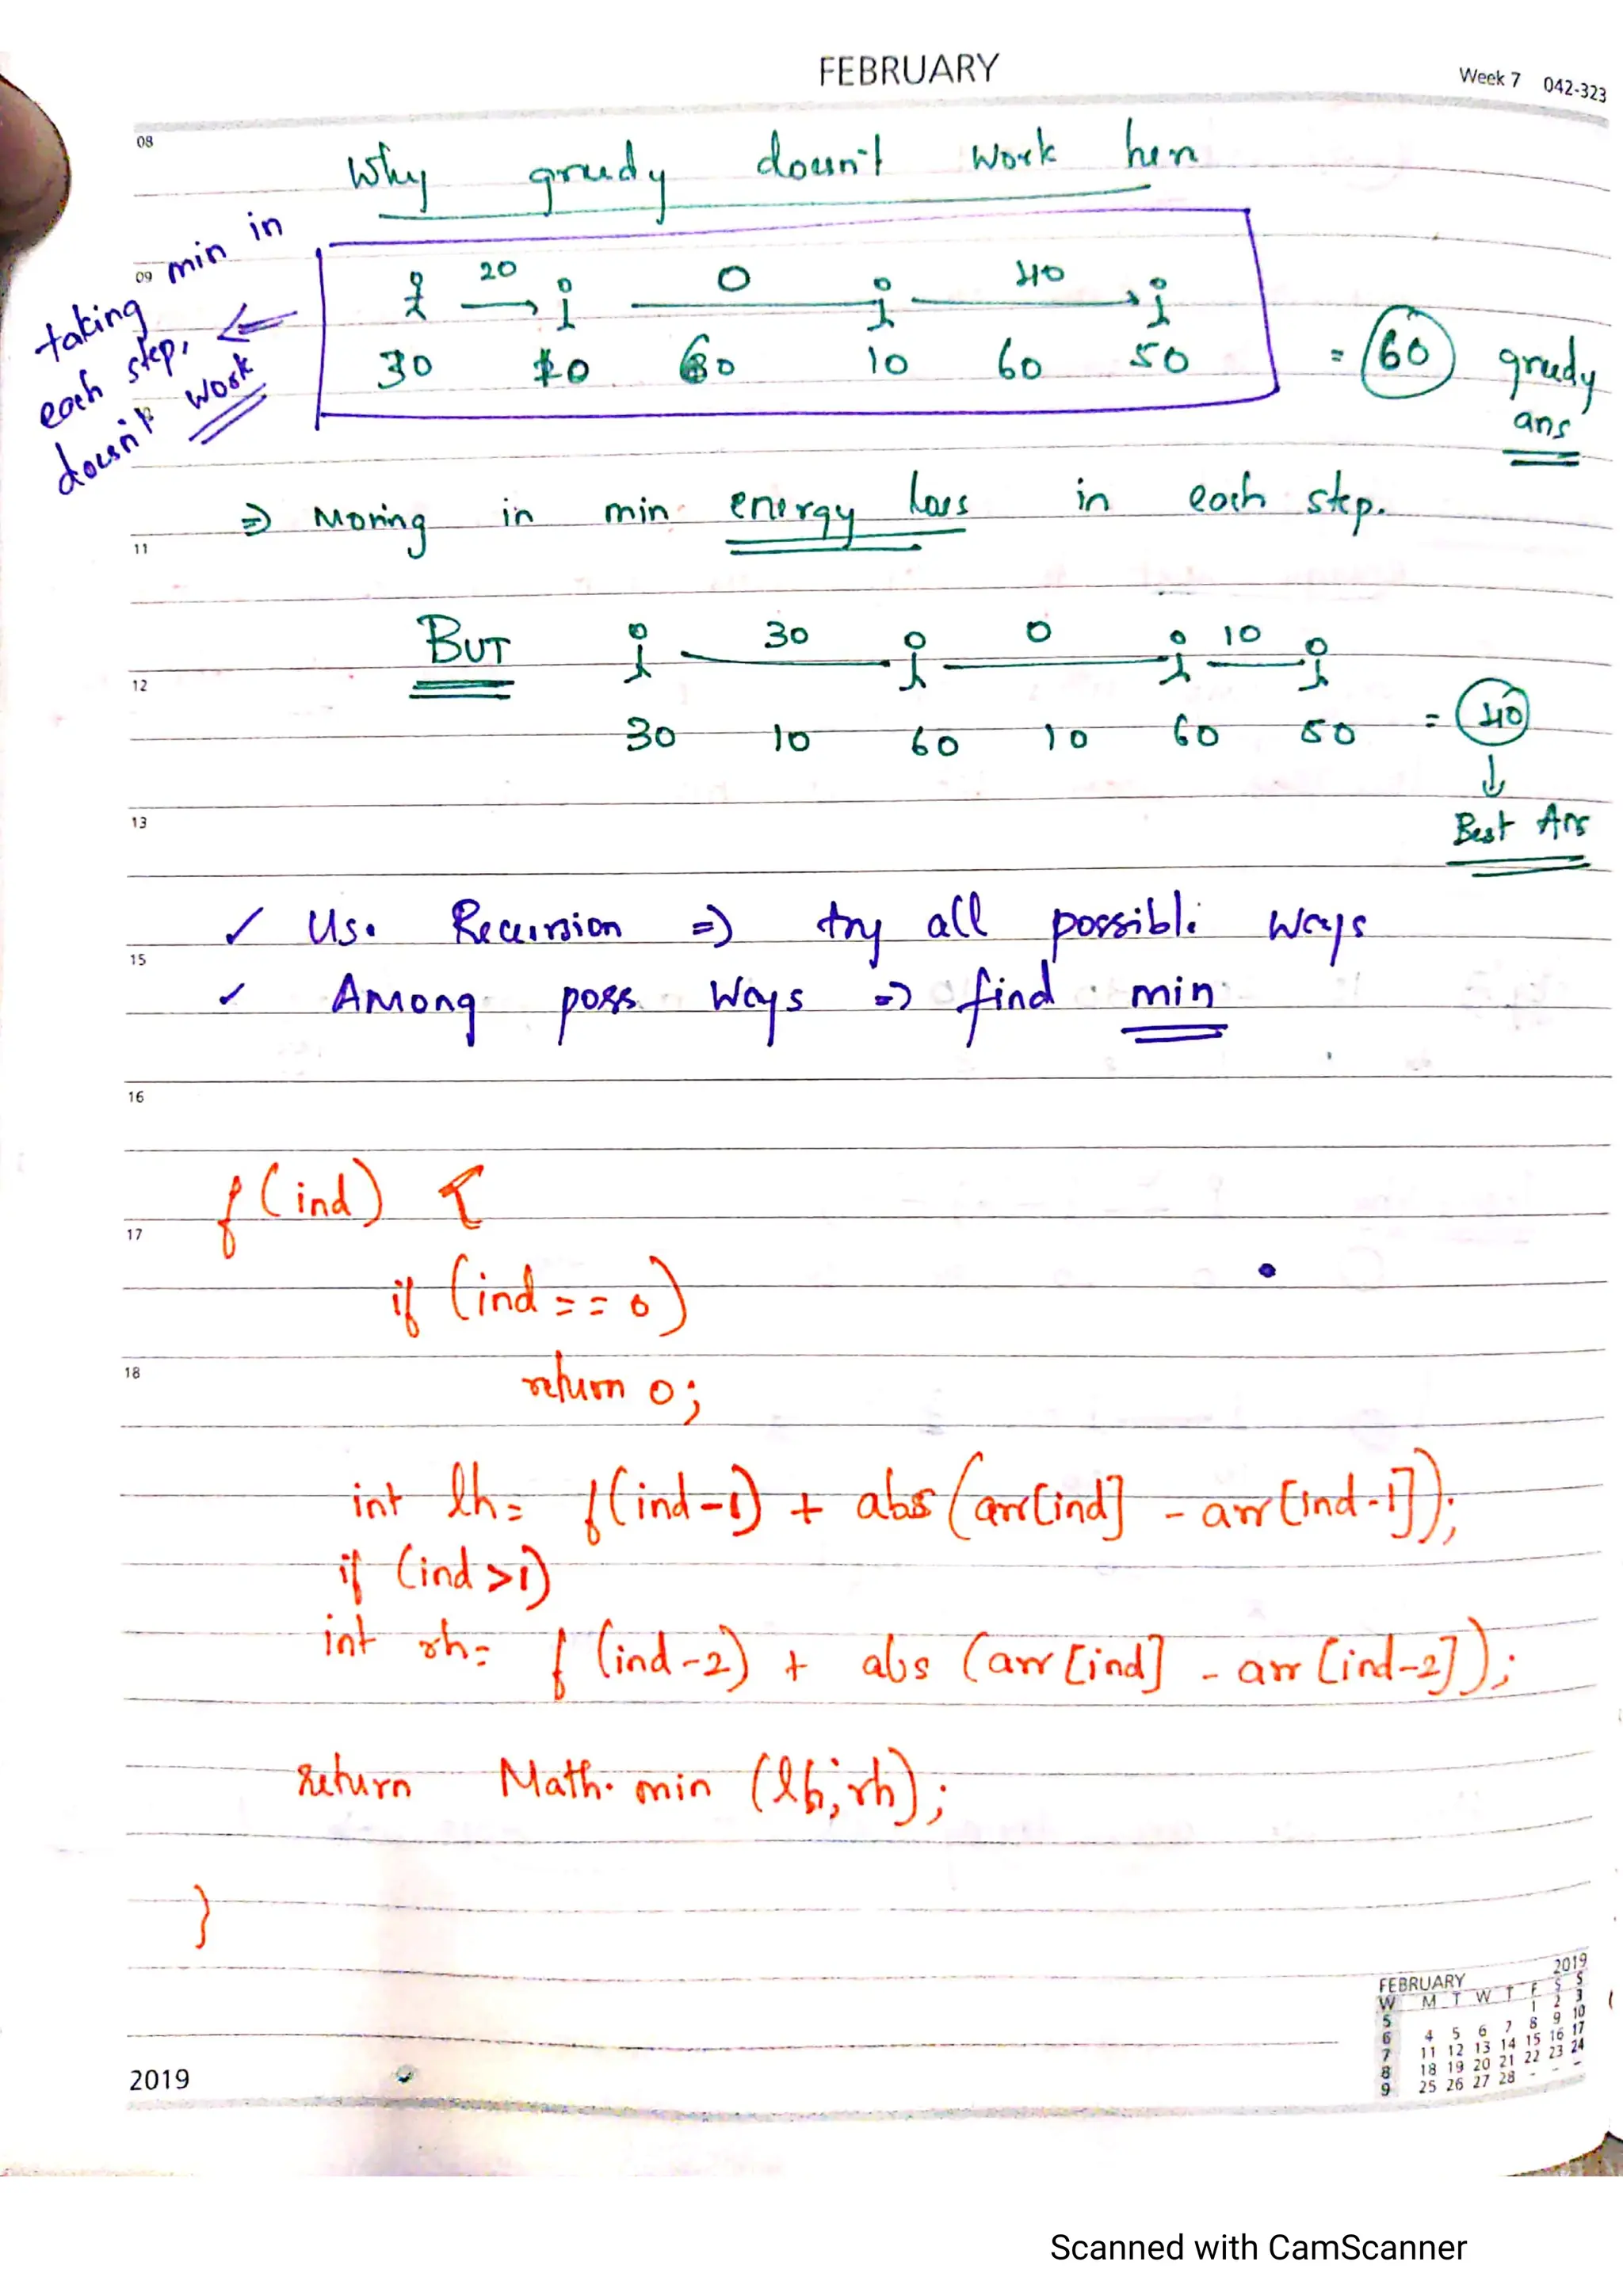 FEBRUARY
Week 7 042-323
08
Why greedy doesn't work here
09
taking min in
each step,
doesn't work
20 0 40
30 10 60 10 60 50 = 60 greedy
ans
=> Moving in min energy loss in each step.
11
BUT 30 0 10
12
30 10 60 10 60 50 = 40
↓
13
Best Ans
✓ Use Recursion => try all possible ways
15
✓ Among poss ways => find min
16
f(ind) {
17
if (ind == 0)
18
return 0;
int lh = f(ind-1) + abs(arr[ind] - arr[ind-1]);
if (ind>1)
int rh = f(ind-2) + abs(arr[ind] - arr[ind-2]);
return Math.min(lh, rh);
}
FEBRUARY 2019
W M T W T F S S
5 1 2 3
6 4 5 6 7 8 9 10
7 11 12 13 14 15 16 17
8 18 19 20 21 22 23 24
9 25 26 27 28 - - -
2019
Scanned with CamScanner